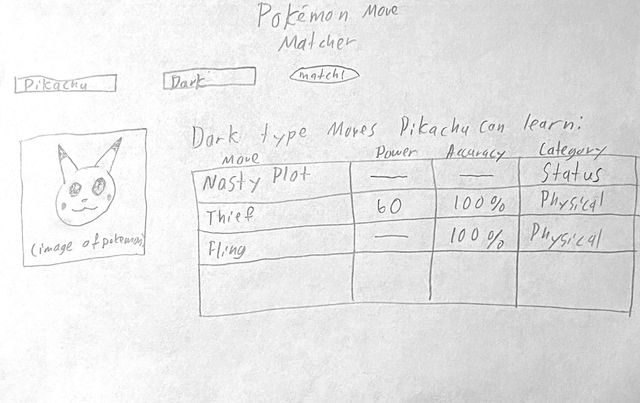 Pokémon Move
Matcher
Pikachu Dark match!
Dark type Moves Pikachu can learn:
Move Power Accuracy Category
Nasty Plot — — Status
Thief 60 100% Physical
Fling — 100% Physical
(image of pokemon)